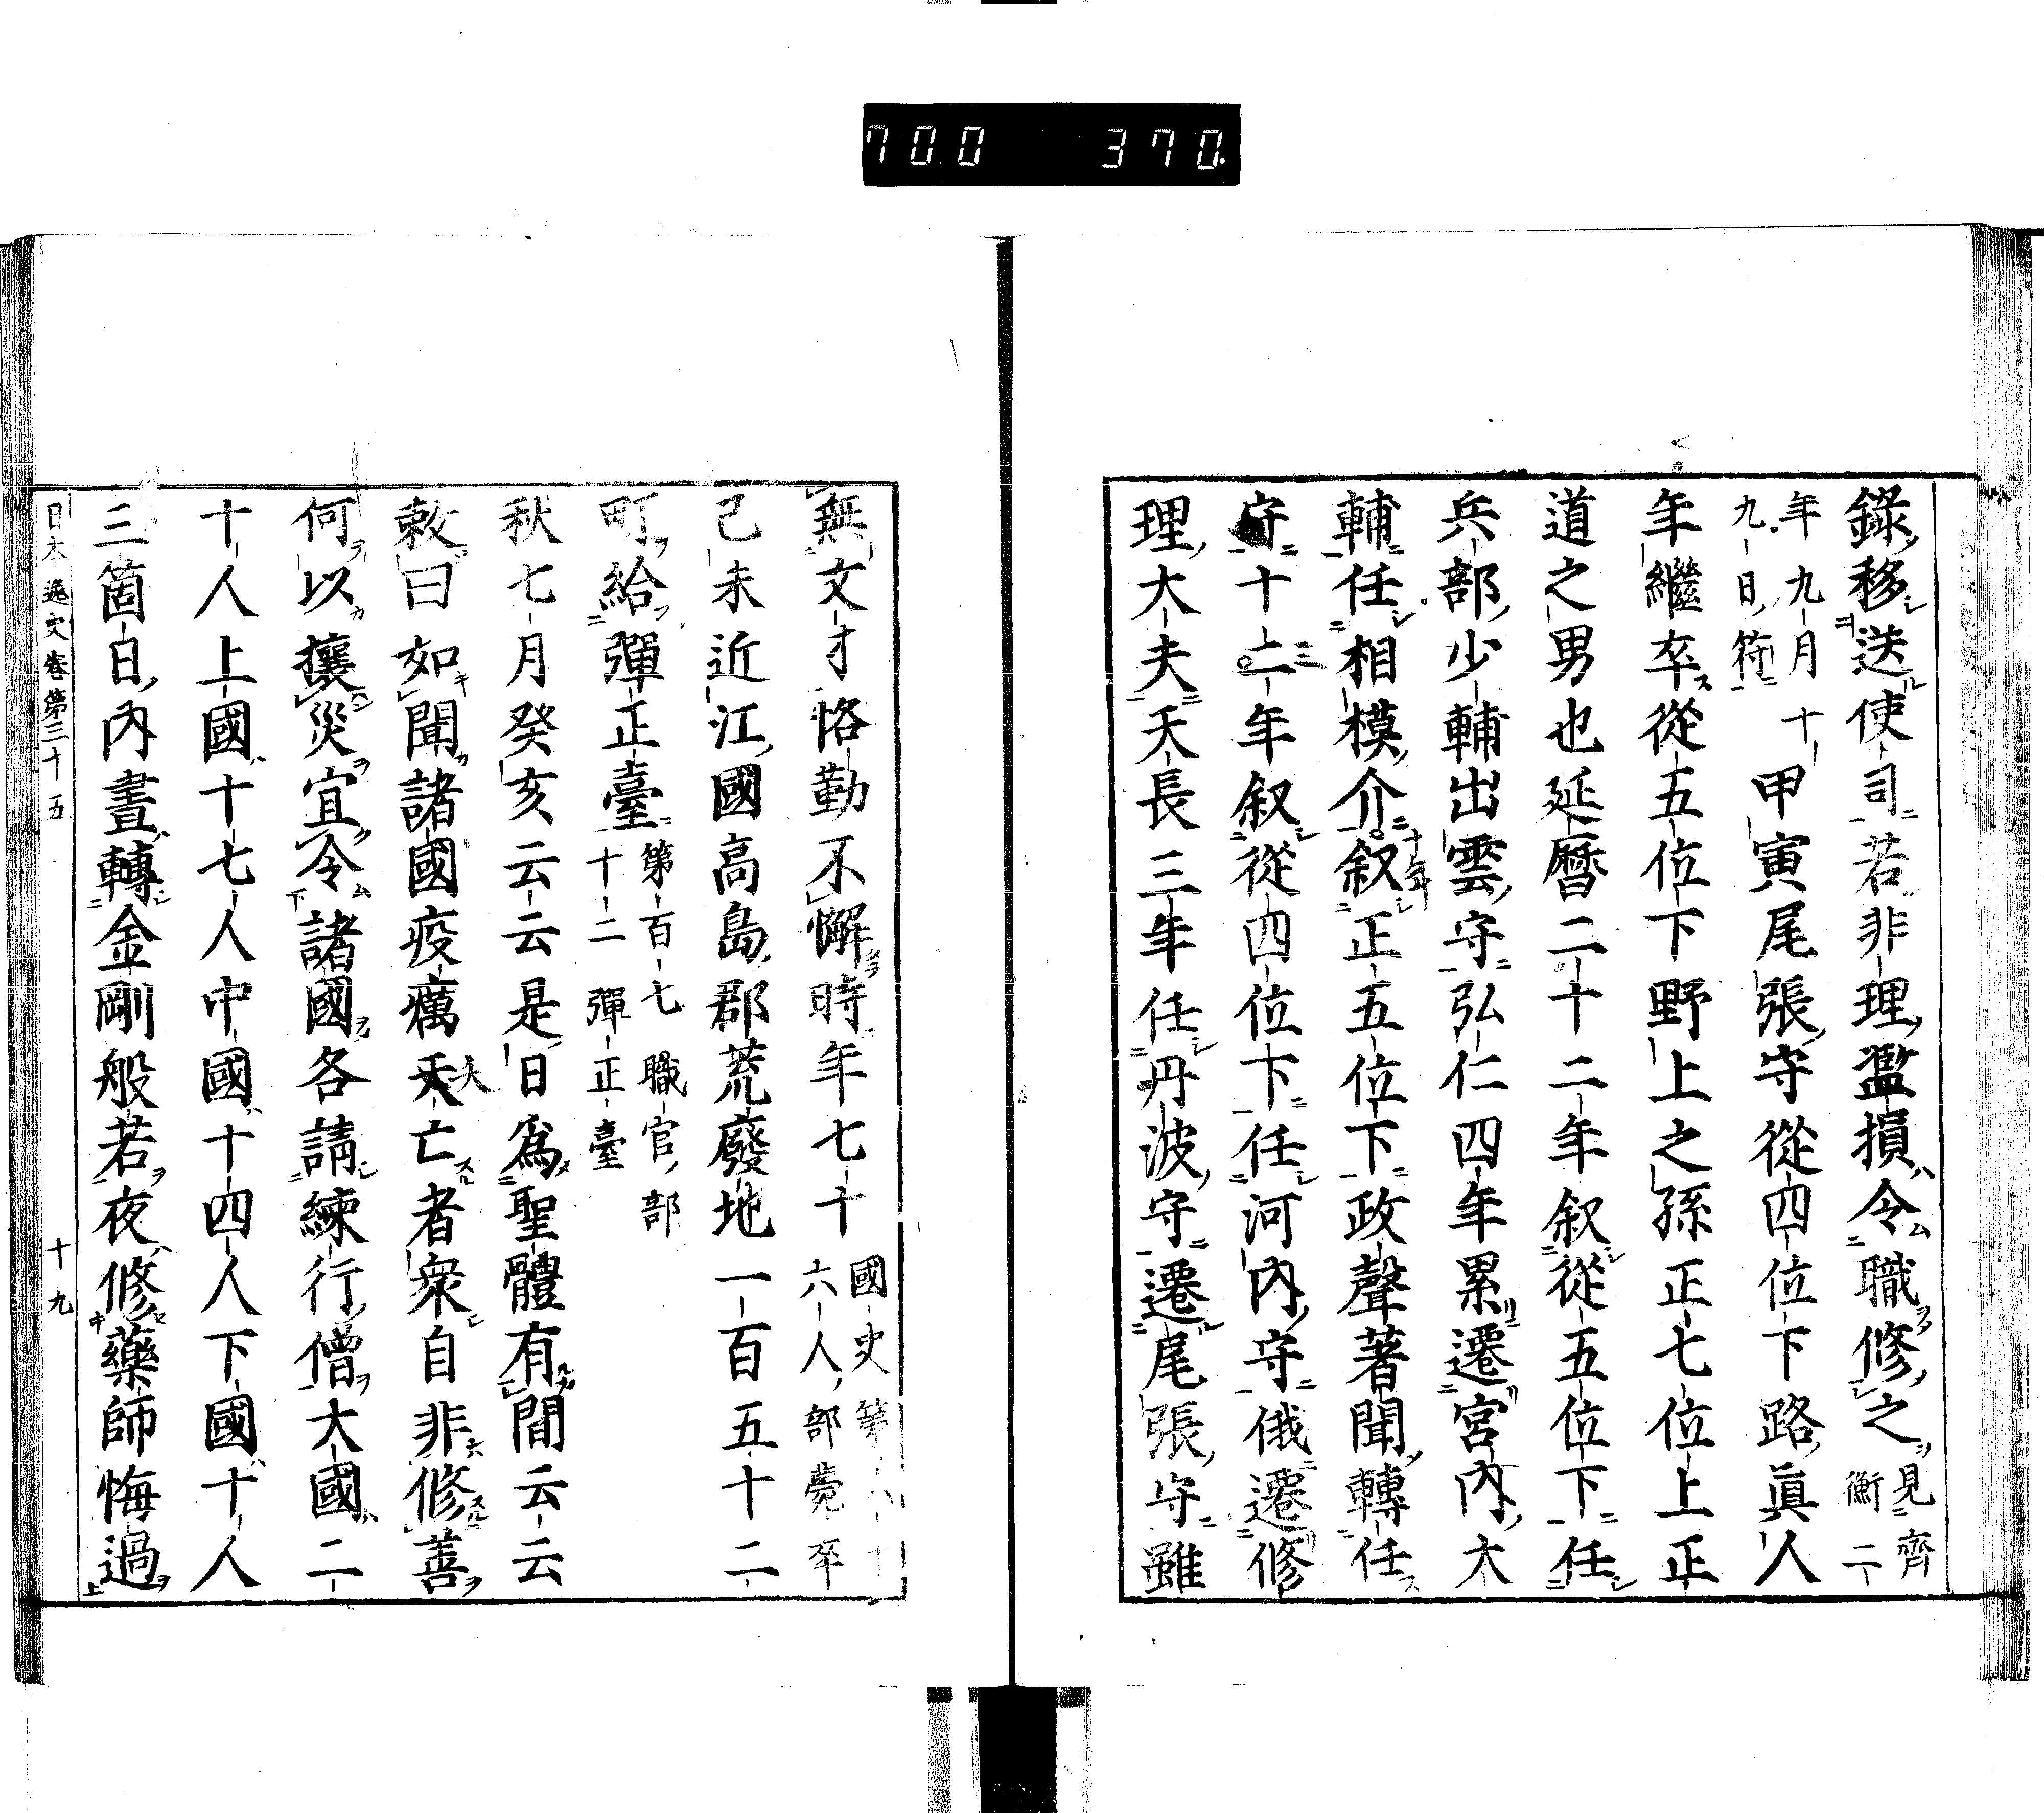 700 370
錄移送使司若非理濫損令職修之見齊衡二
年九月十九日符甲寅尾張守從四位下路眞人
年繼卒從五位下野上之孫正七位上正
道之男也延曆二十二年叙從五位下任
兵部少輔出雲守弘仁四年累遷宮內大
輔任相模介十年叙正五位下政聲著聞轉任
守十二年叙從四位下任河內守俄遷修
理大夫天長三年任丹波守遷尾張守雖
無文才恪勤不懈時年七十國史第六十六人部薨卒
己未近江國高島郡荒廢地一百五十二
町給彈正臺第百七職官部十二彈正臺
秋七月癸亥云云是日爲聖體有間云云
敕曰如聞諸國疫癘夭亡者衆自非修善
何以攘災宜令諸國各請練行僧大國二
十人上國十七人中國十四人下國十人
三箇日內晝轉金剛般若夜修藥師悔過
日本逸史卷第三十五 十九